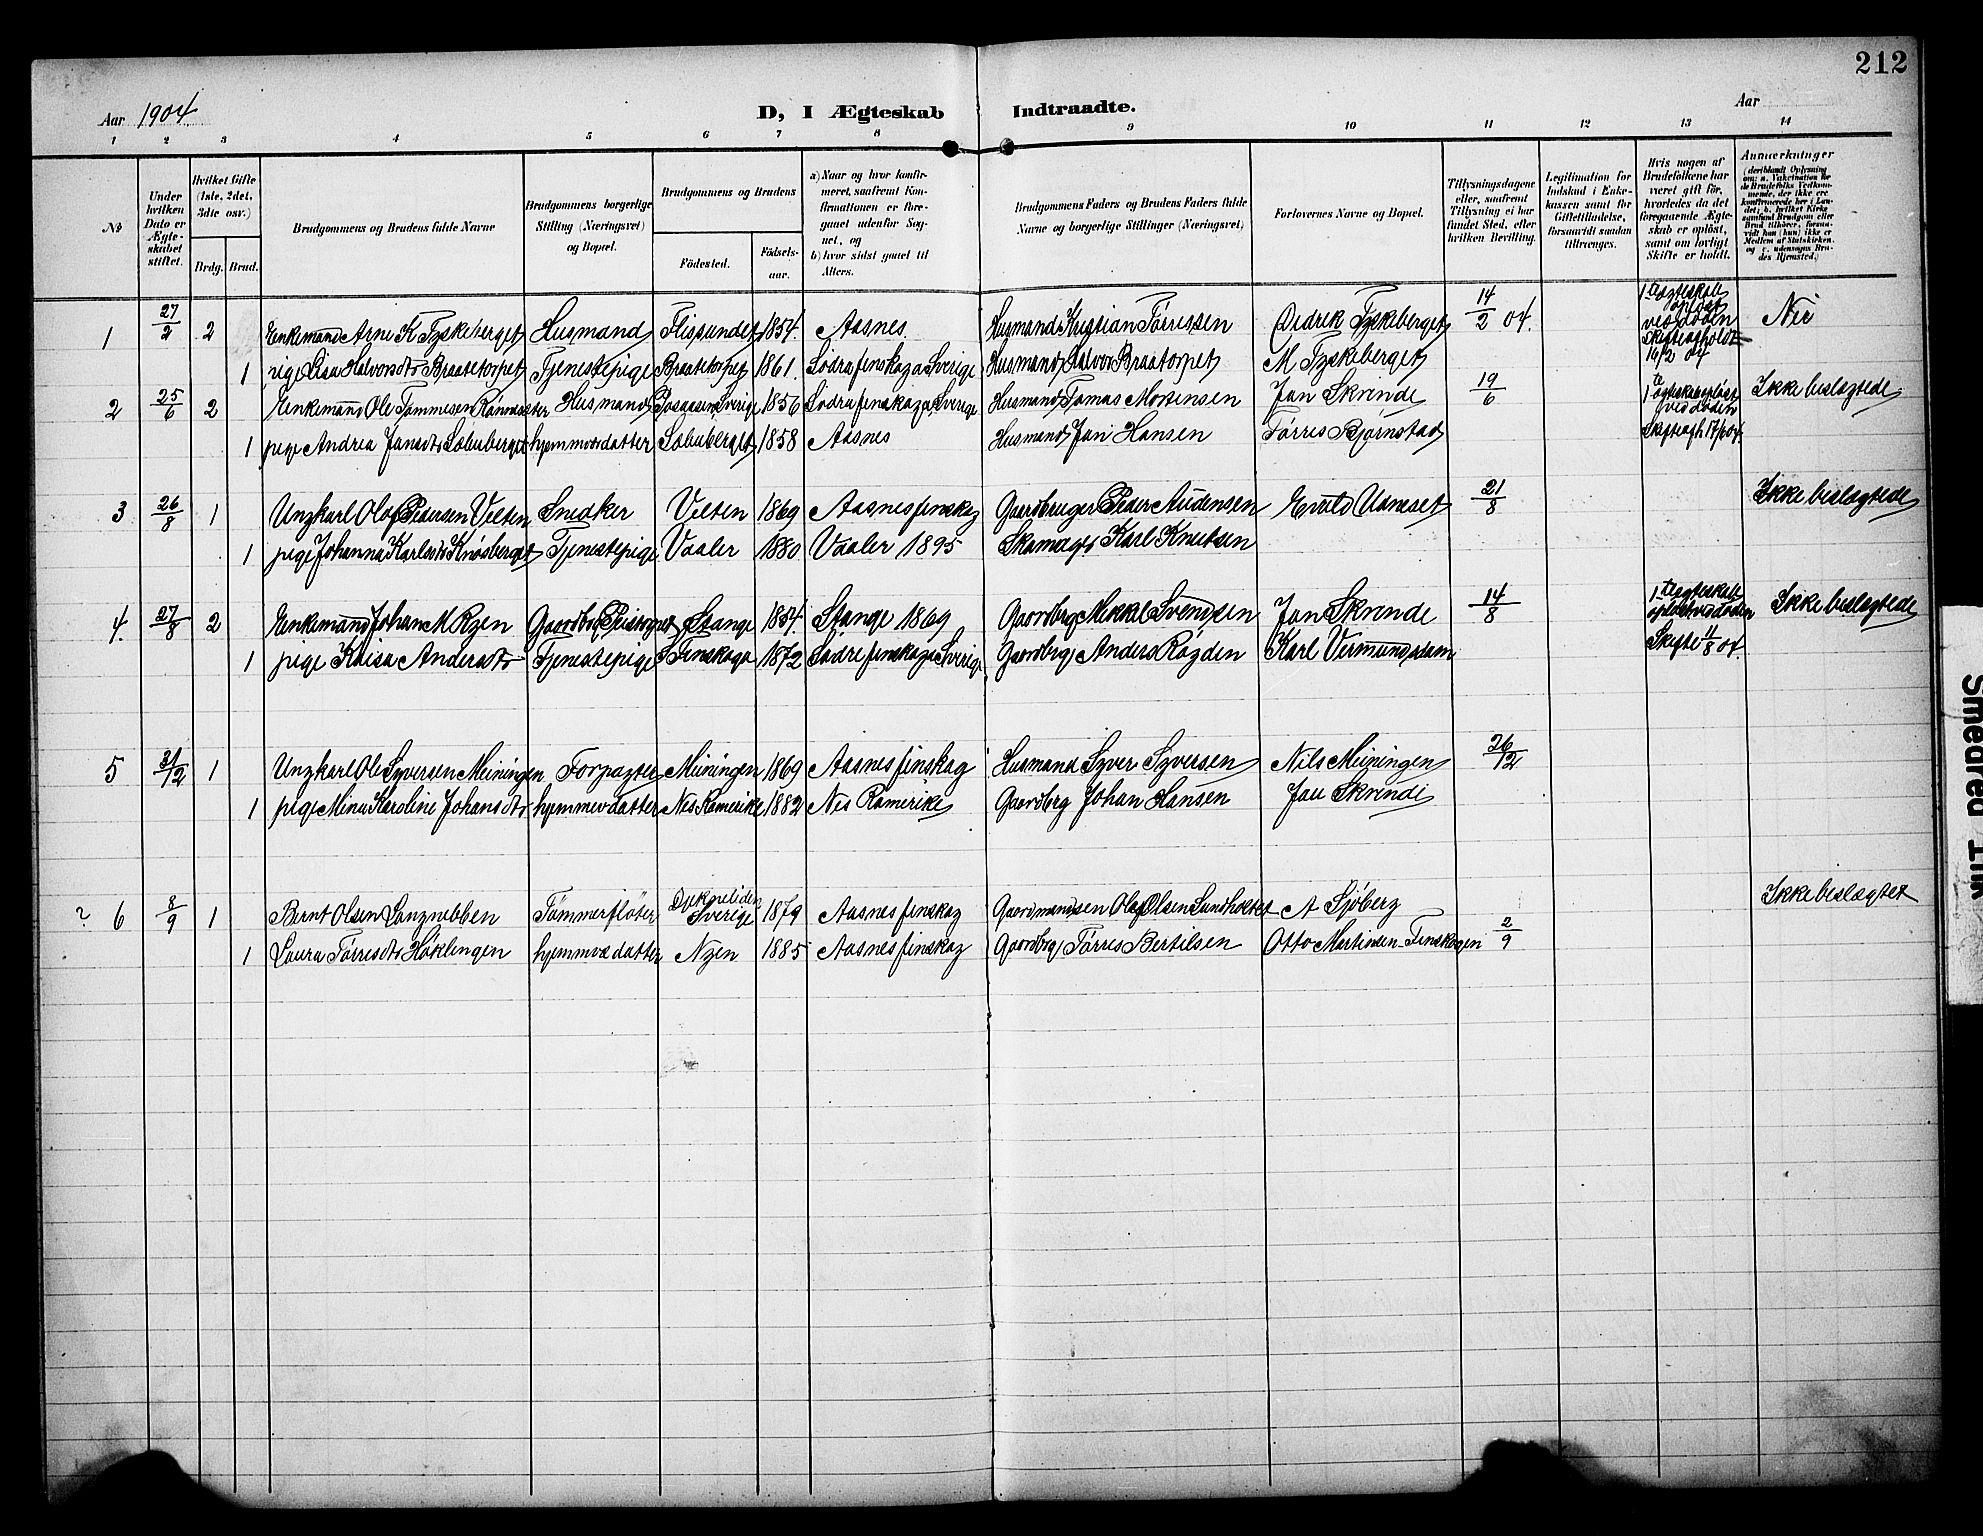 212
Aar 1904
D, I Ægteskab Indtraadte.
Aar
1 2 3 4 5 6 7 8 9 10 11 12 13 14
No
Under hvilken Dato er Ægteskabet stiftet.
Hvilket Gifte (1ste, 2det, 3die osv.)
Brdg. Brud.
Brudgommens og Brudens fulde Navne
Brudgommens borgerlige Stilling (Næringsvei) og Bopæl.
Brudgommens og Brudens
Fødested. Fødselsaar.
a) Naar og hvor konfirmeret, saafremt Konfirmationen er foregaaet udenfor Sognet, og
b) hvor sidst gaaet til Alters.
Brudgommens Faders og Brudens Faders fulde Navne og borgerlige Stillinger (Næringsvei)
Forlovernes Navne og Bopæl.
Tillysningsdagene eller, saafremt Tillysning ei har fundet Sted, efter hvilken Bevilling.
Legitimation for Indskud i Enkekassen samt for Giftetilladelse, forsaavidt saadan tiltrænges.
Hvis nogen af Brudefolkene har været gift før, hvorledes da det foregaaende Ægteskab er opløst, samt om lovligt Skifte er holdt.
Anmerkninger
1 27/2 2 Enkemand Arne K Tyskeberget Husmand Flissundet 1854. Aasnes. Husmand Kristian Tørressen Didrik Tyskeberget 14/2 04. 1te Ægteskab opløst ved døden Skifte afholdt 16/2 04 Nei
1 pige Lisa Halvorsdtr Braatetorpet Tjenestepige Braatetorpet 1861. Södra finskoga Sverige Husmand Halvor Braatorpet M Tyskeberget
2 25/6 2 Enkemand Ole Tommesen Husmand Sverige 1856 Södra finskoga Sverige Husmand Tomas Mortensen Jan Skrinde 19/6 1te Ægteskab opløst ved døden Ikke beslægtede
1 pige Andrea Jansdtr hjemmev datter 1858 Aasnes Husmand Jan Hansen Tørres Bjørnstad
3 26/8 1 Ungkarl Olaf Pedersen Velten Snedker Velten 1869 Aasnes finskog Gaardbruger Peder Audensen 21/8 Ikke beslægtede
1 pige Johanna Karlsdtr Knøsberget Tjenestepige Vaaler 1880 Vaaler 1895 Skomager Karl Knutsen
4. 27/8 2 Enkemand Johan M Ryen Gaardbr Stange 1854. Stange 1869 Gaardbrg Mikkel Svendsen Jan Skrinde 14/8 1te Ægteskab opløst ved døden Ikke beslægtede
1 pige Kaisa Andersdtr Tjenestepige S Finskoga 1872 Södre finskoga Sverige Gaardbrg Anders Røgden Karl Vermundsdam Skifte 1/8 04.
5 31/12 1 Ungkarl Ole Syversen Meiningen Forpagter Meiningen 1869 Aasnes finskog Husmand Syver Syversen Nils Meiningen 26/12
1 pige Mina Karoline Johansdtr hjemmev datter Nes Romerike 1882 Nes Romerike Gaardbrg Johan Hansen Jan Skrindi
? 6 8/9 1 Bernt Olsen Langnebben Tømmerfløter Sverige 1879 Aasnes finskog Olsen A Sjöberg Ikke beslægtet
1 Laura Tørresdtr Høklingen hjemmev datter Nyen 1885 Aasnes finskog Gaardbrg Tørres Bertilsen Otto Martinsen Finskogen 2/9